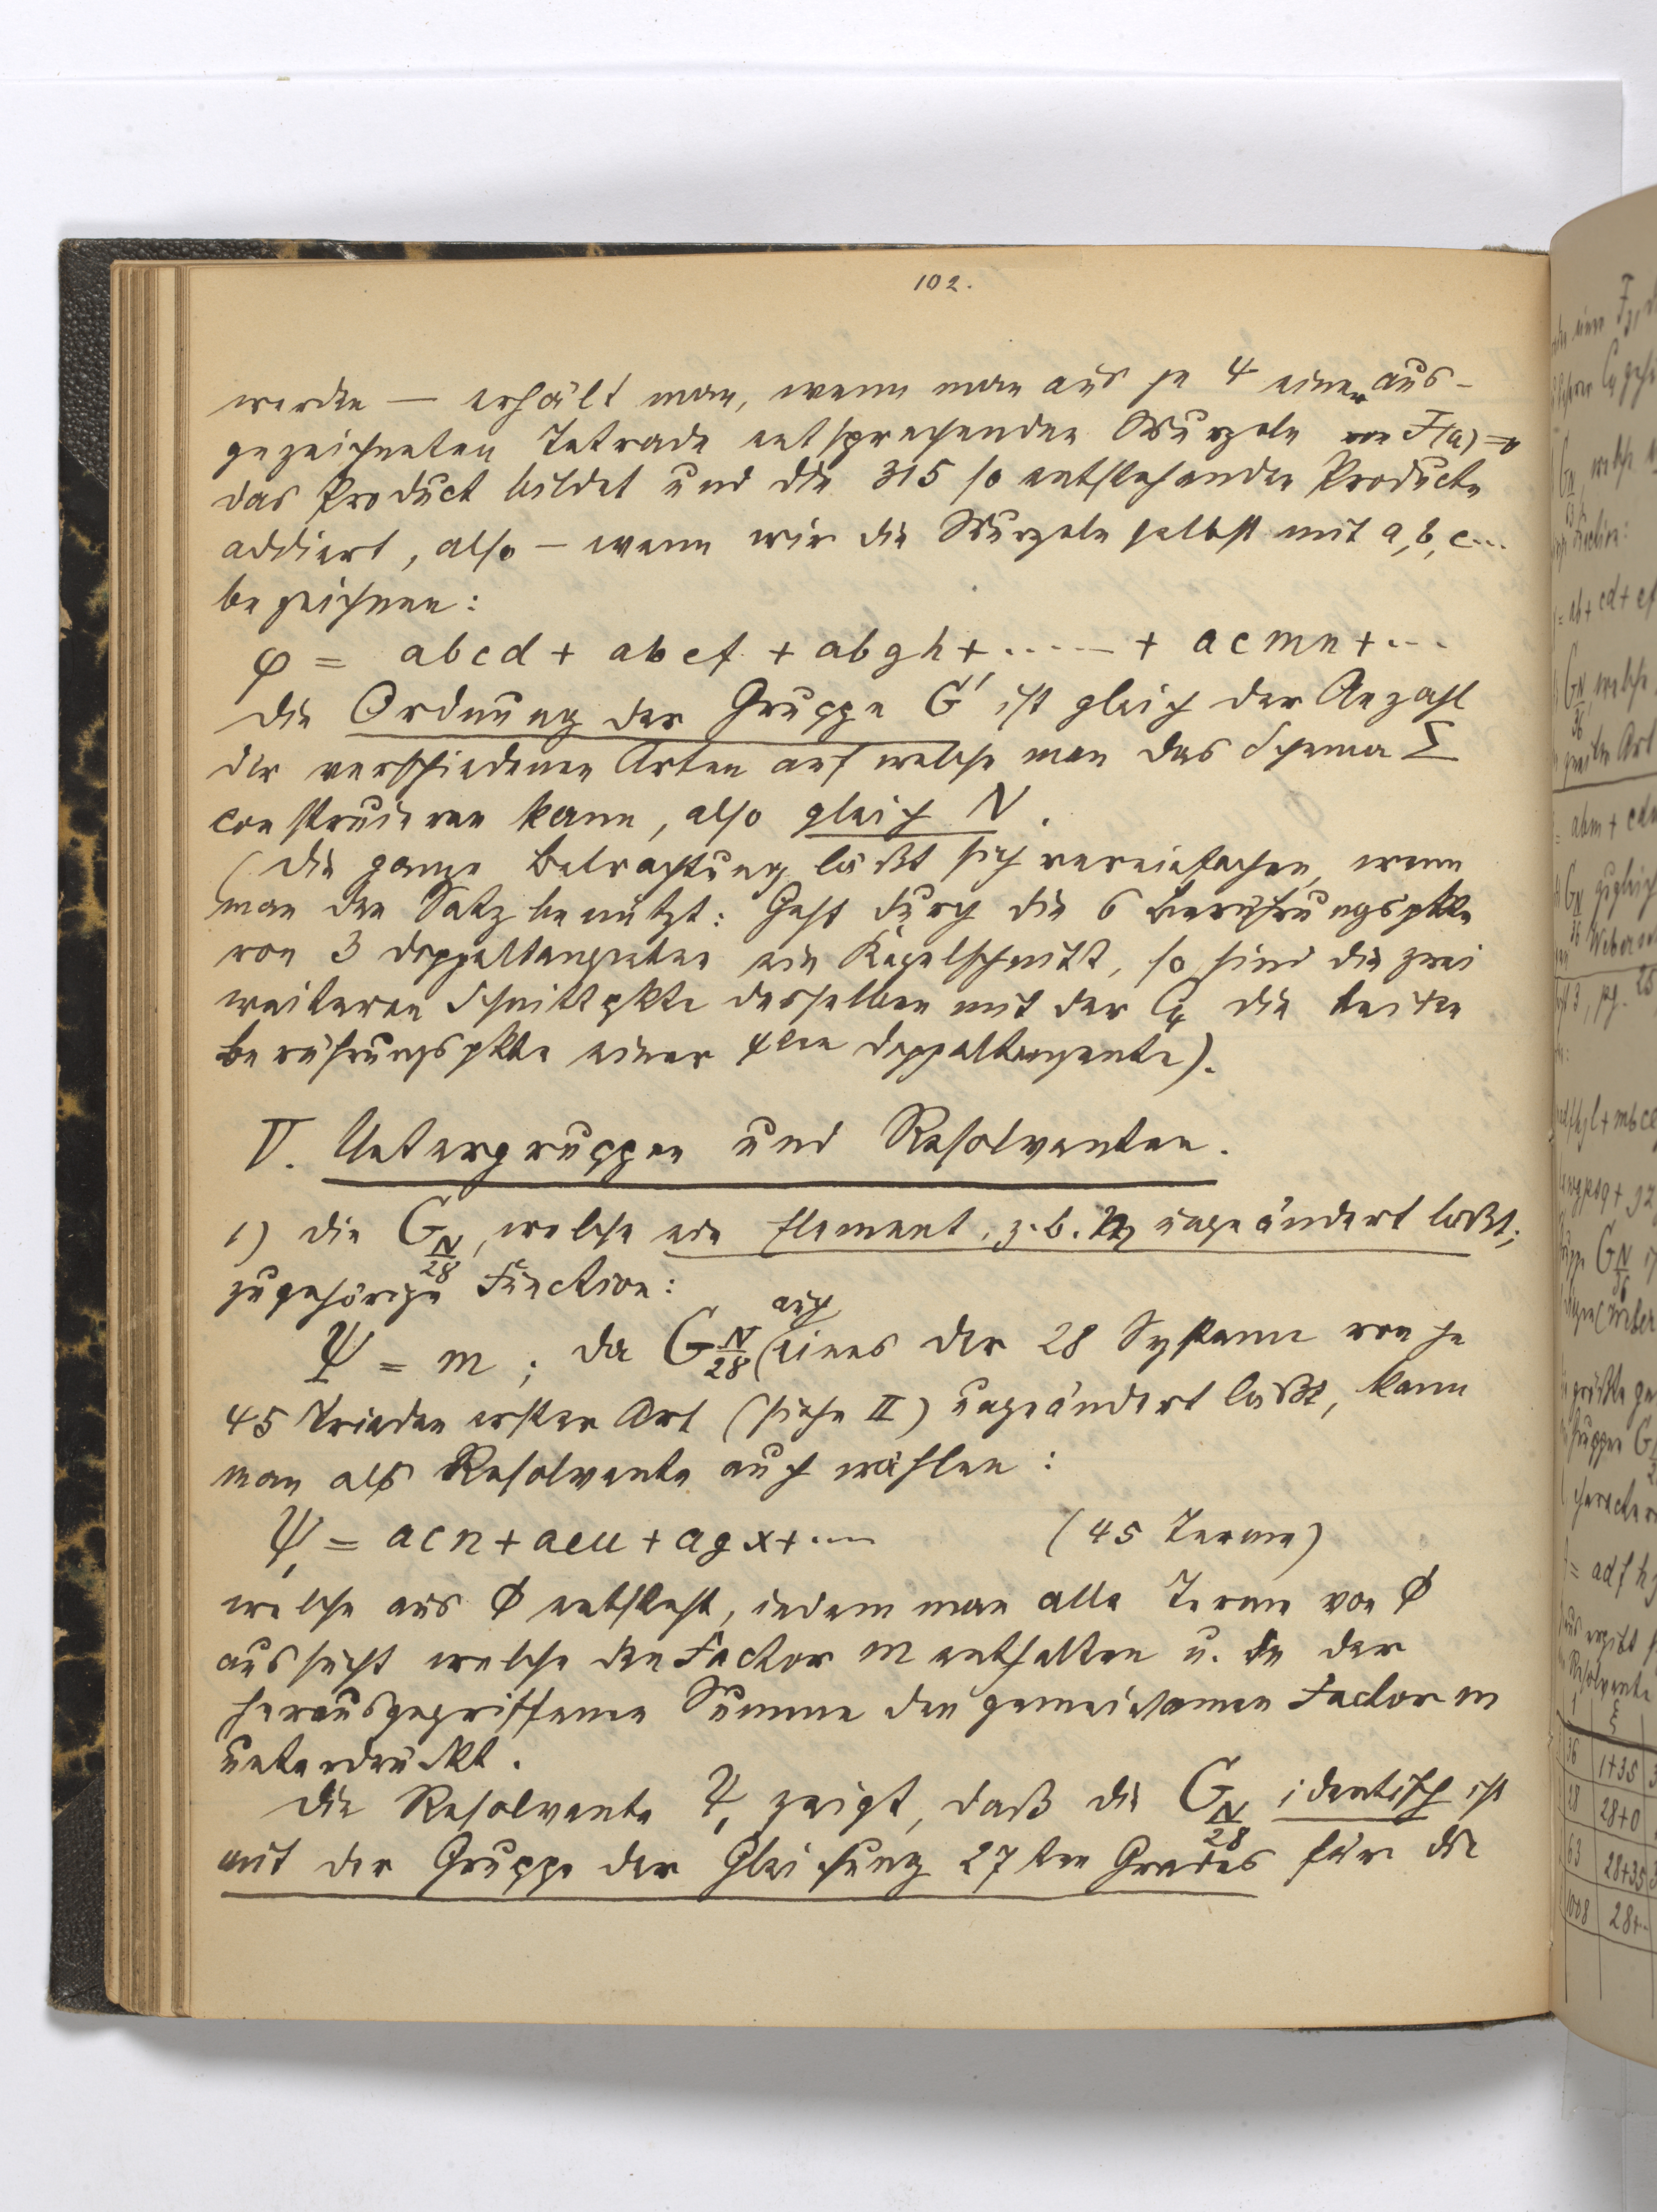 102.
werden — erhält man, wenn man aus je 4 einer aus-
gezeichneten Tetrade entsprechenden Wurzeln von F(a)=0
das Product bildet und die 315 so entstehenden Producte
addiert, also — wenn wir die Wurzeln selbst mit a, b, c...
bezeichnen:
φ = abcd + abef + abgh + ..... + acmn + ...
Die Ordnung der Gruppe G' ist gleich der Anzahl
der verschiedenen Arten auf welche man das Schema Σ
construieren kann, also gleich N.
(Die ganze Betrachtung läßt sich vereinfachen, wenn
man den Satz benützt: Geht durch die 6 Berührungspkte
von 3 Doppeltangenten ein Kegelschnitt, so sind die zwei
weiteren Schnittpkte desselben mit der C4 die beiden
Berührungspkte einer 4ten Doppeltangente).
V. Untergruppen und Resolventen.
1) Die G N/28, welche ein Element, z.B. m ungeändert läßt;
zugehörige Function:
Ψ = m; da G N/28 auch eines der 28 Systeme von je
45 Triaden erster Art (siehe II) ungeändert läßt, kann
man als Resolvente auch wählen:
Ψ, = acn + aeu + agx + .... (45 Terme)
welche aus Φ entsteht, indem man alle Terme von Φ
aussucht welche den Factor m enthalten u. in der
herausgegriffenen Summe den gemeinsamen Factor m
unterdrückt.
Die Resolvente Ψ, zeigt, daß die G N/28 identisch ist
mit der Gruppe der Gleichung 27ten Grades für die